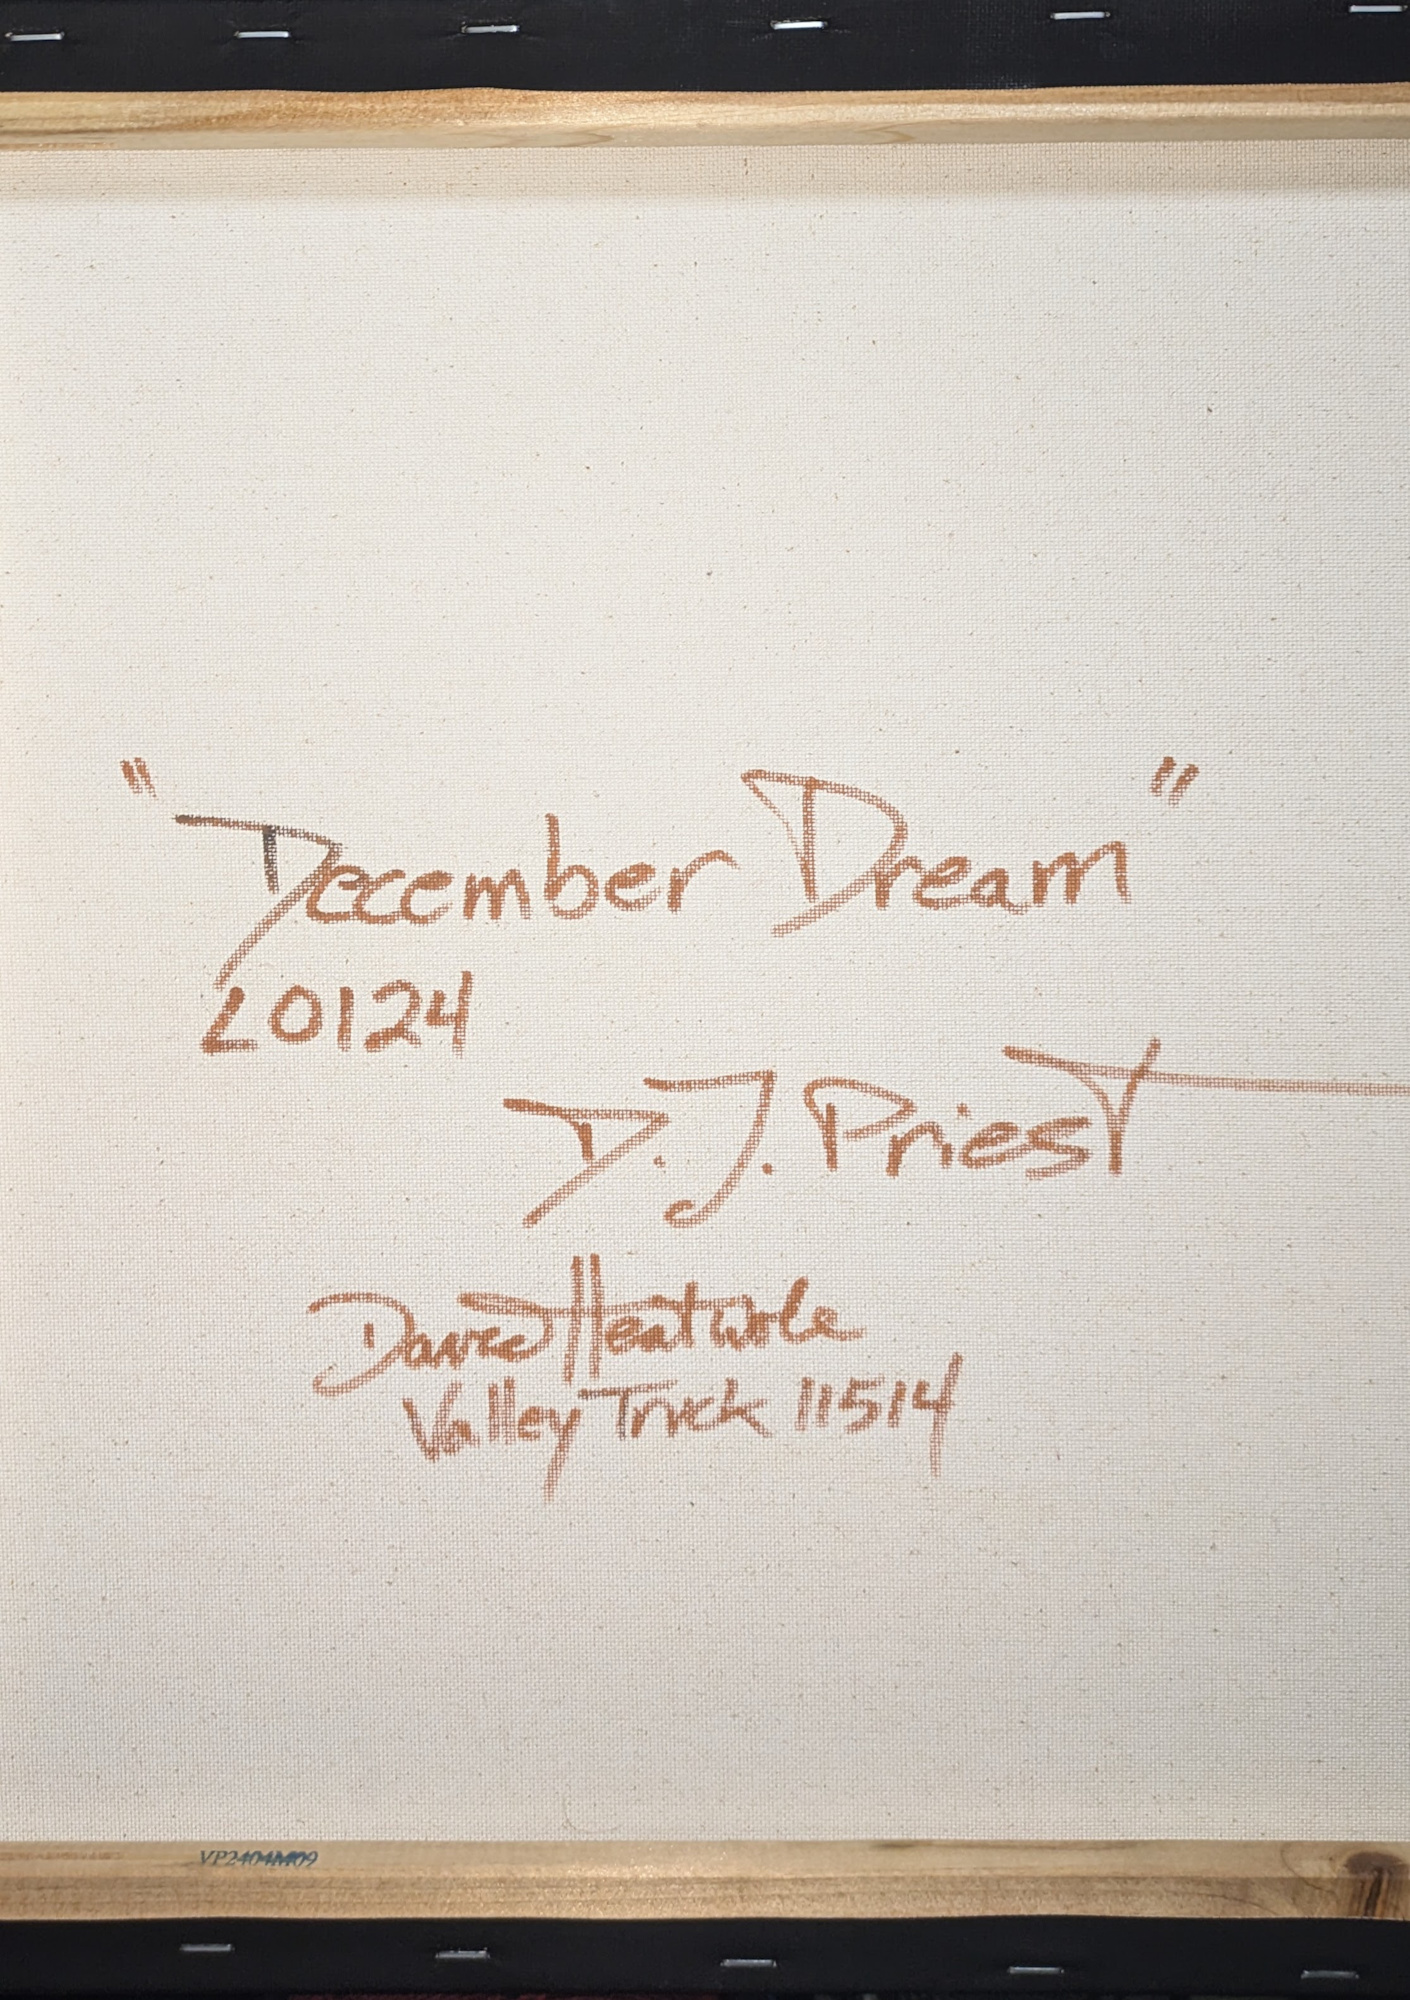 "December Dream"
L0124
D.J. Priest
David Heatwole
Valley Truck 11514
VP2404M09